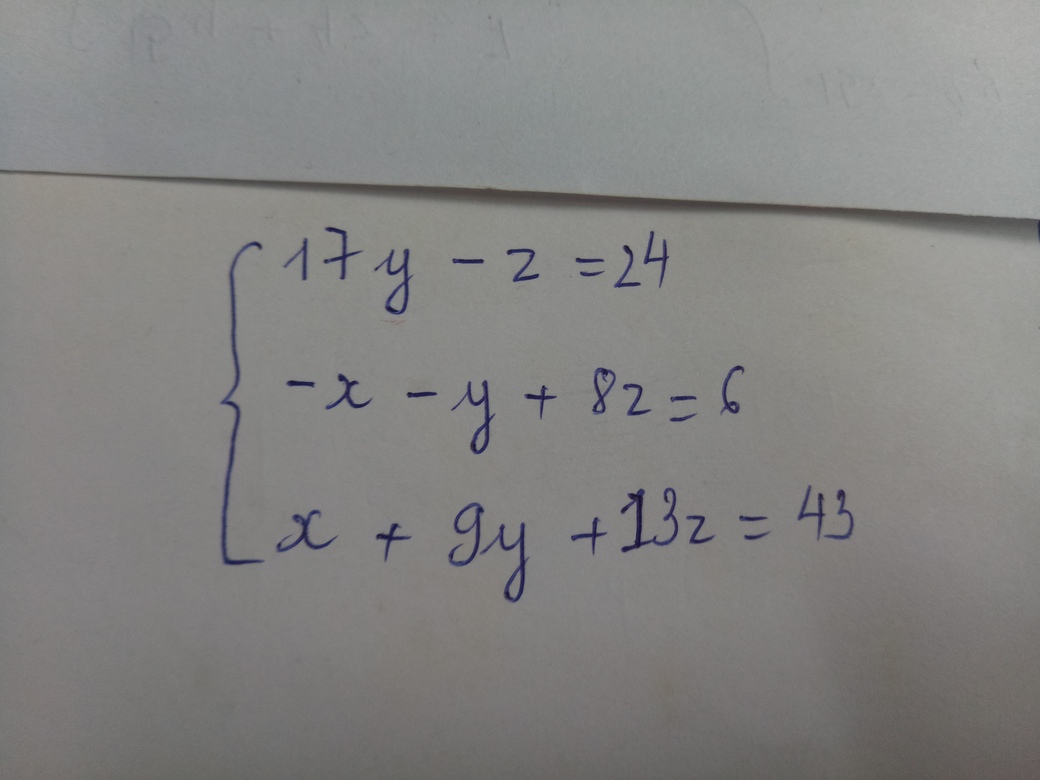 17y - z = 24
-x - y + 8z = 6
x + 9y + 13z = 43